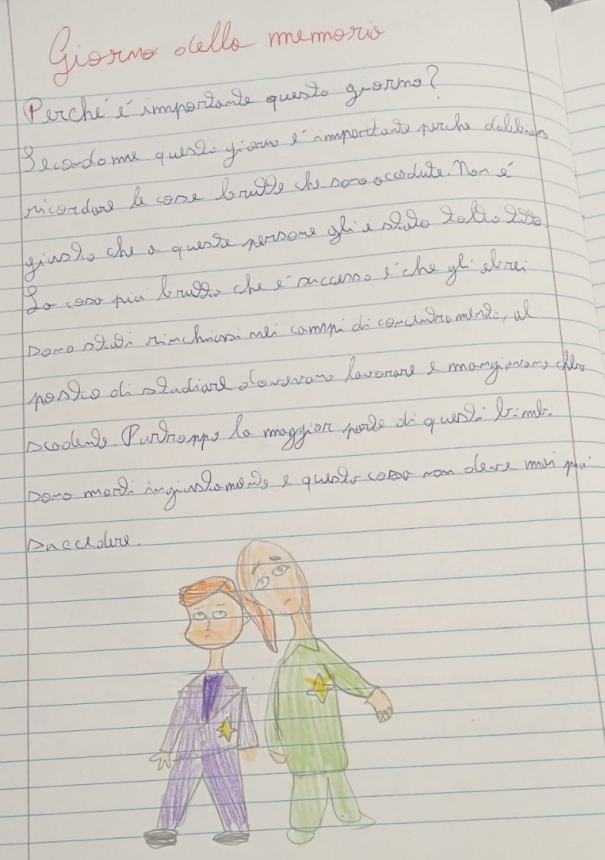 Giorno della memoria
Perché é importante questo giorno?
Secondo me questo giorno é importante perche dobbiamo
ricordare le cose brutte che sono accadute. Non é
giusto che a queste persone gli e stato tolto tutto.
La cosa piú brutta che é successa é che gli ebrei
sono stati rinchiusi nei campi di concentramento, al
posto di studiare dovevano lavorare e mangiavano cibo
scadente. Purtroppo la maggior parte di questi bimbi
sono morti ingiustamente e questa cosa non deve mai piú
succedere.